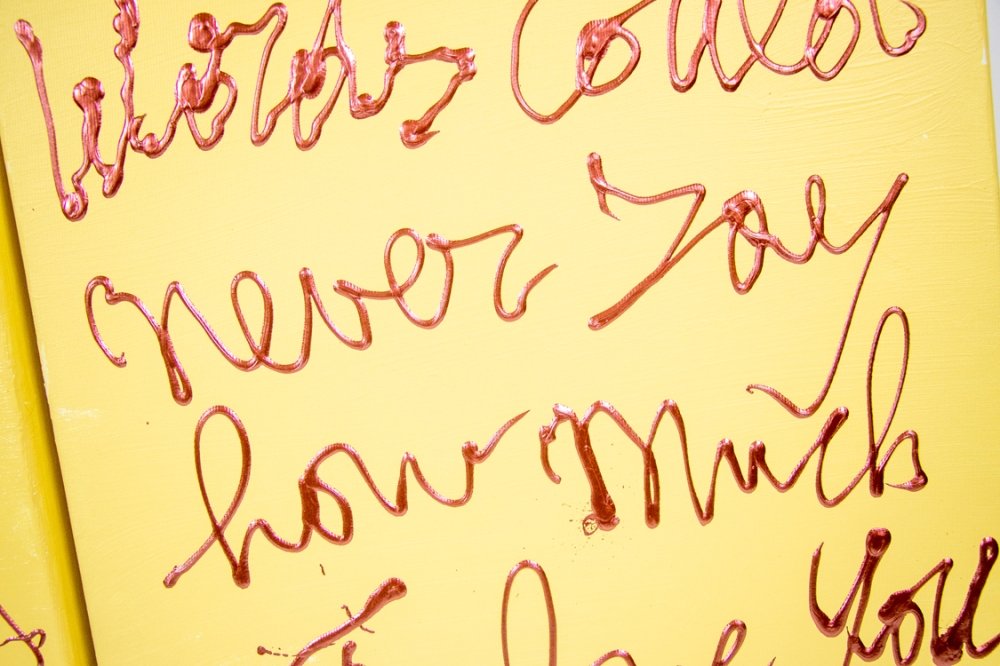 Words Could
never Say
how much
I love You